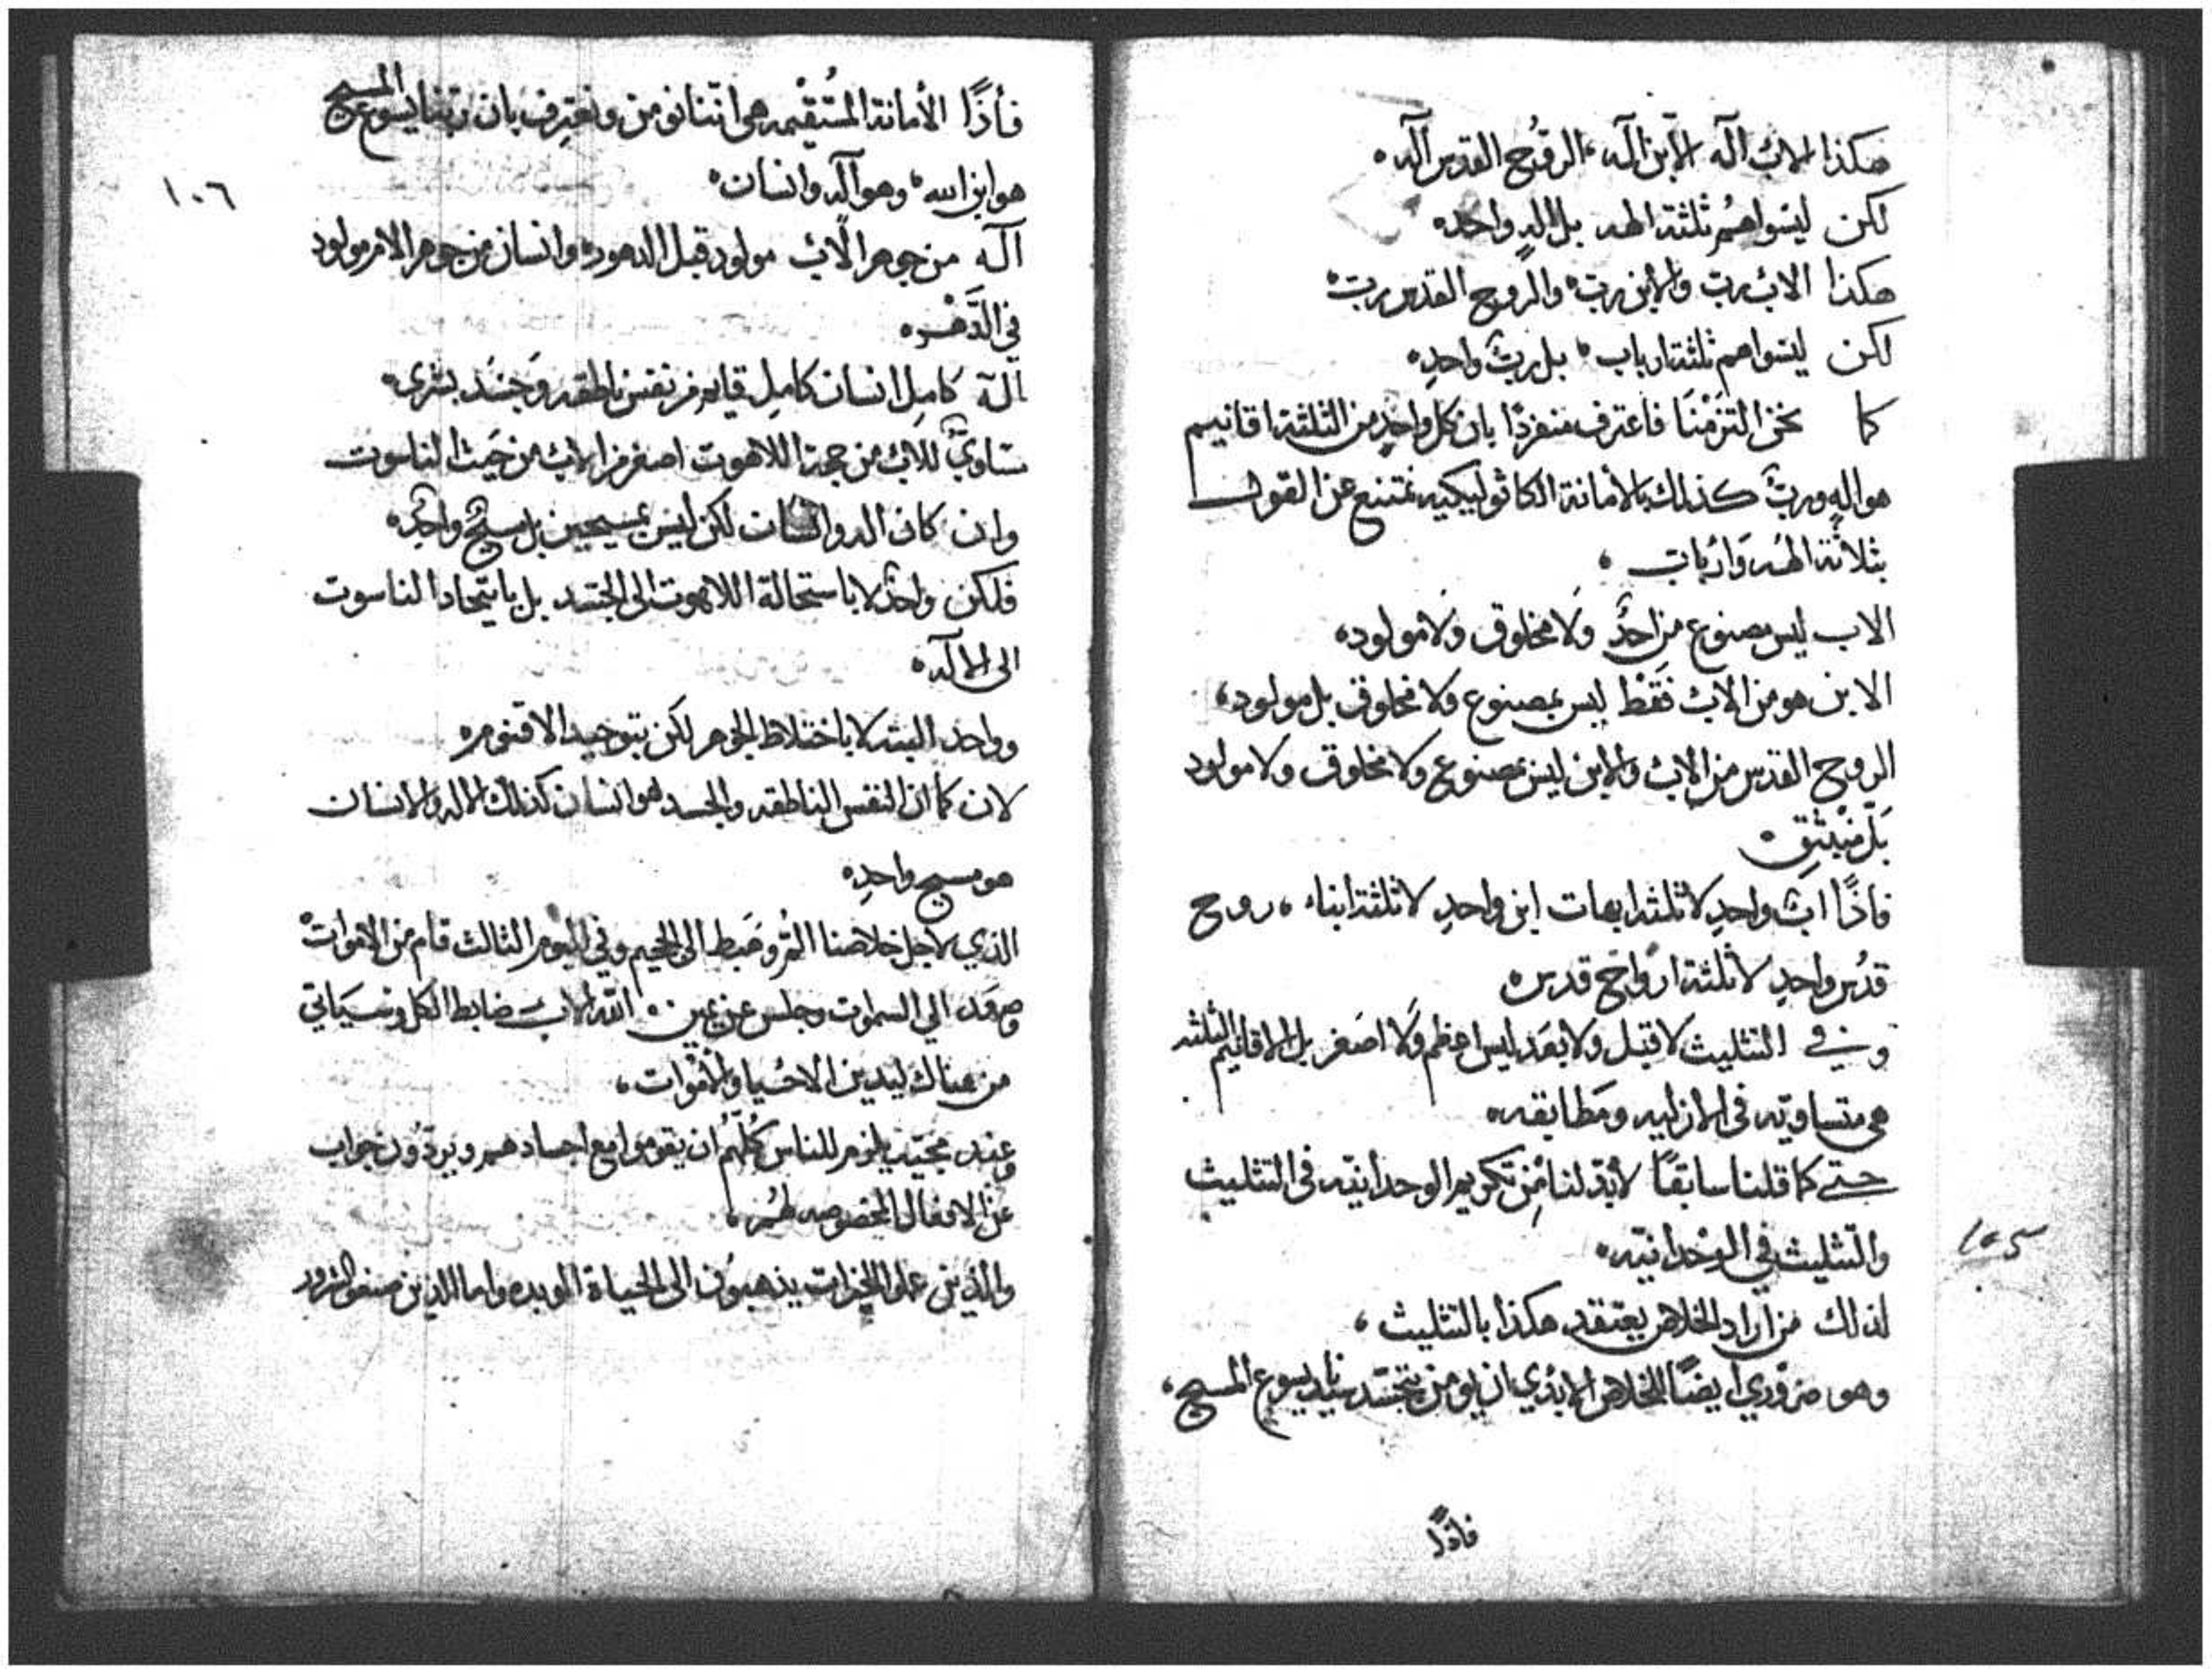 هكذا الابُ آله الأبن آله، الروُح القدس آله ٥
لكن ليسَوا هُم ثلثة الهه بل الهٍ واحد٥
هكذا الابُ ربّ والأبن ربّ٥ والروح القدس ربّ٥
لكن ليسَوا هم ثلثة ارباب ٥ بل ربٌّ واحدٍ٥
كما نحن التزَمْنَا فاعترف منفردًا بان كل واحدٍ من الثلثة اقانيم
هو الهٍ وربٌّ كذلك بالأمانة الكاثوليكيه نمتنع عن القول
بثلاثة الهَه وَارْباب ،
الاب ليس مصنوع من احدٌ وَلَا مخلوق وَلَا مولود،
الابن هو من الابُ فَقَطْ ليس بمصنوع ولا مخلوق بل مولود،
الروح القدس من الابُ والأبن ليس بمصنوع ولا مخلوق ولا مولود
بَل منبْثقِ ٥
فاذًا ابٌ واحدٍ لا ثلثة ابهات ابن واحدٍ لا ثلثة ابناء ، روح
قدُس واحدٍ لا ثلثة ارْواح قدس٥
وفي التثليث لا قبَل ولا بَعَد ليس اعظم وَلَا اصَغر بل الاقانيم الثلثه
هي متساويّه في الازليه ومَطابقه٥
حتي كما قلنا سابقًا لابُدّ لنا مِن تكريم الوحدانيّه في التثليث
والتثليث في الوحْدانيّه٥
لذلك من اراد الخلاص يعتقد هكذا بالتثليث ،
وهو ضروري ايضًا للخلاص الابدَي ان يؤمن بتجسّد سيّدنا يسوع المسيح ،
فاذًا
١٠٥
فأذًا الأمانة المُسْتقْيمه هي اننا نؤمن ونعترف بان ربّنا يسوع المسيح
هو ابن الله ، وهو آله وانسان ٥
١٠٦
آله من جوهر الابُ مولود قبل الدهود٥ وانسان من جوهر الام مولود
في الدَّهْر٥
آلهٌ كامِل انسان كامِل قايم من نفس ناطقه وَجسَد بشري٥
متساويٌ للابُ من جهة اللاهوت اصغر من الابُ من حَيث الناسوت
وان كان اله وانسان لكن ليس بمسيحين بل مسيحٌ واحدٌ٥
فلكن واحدٌ لا باستحالة اللاهوت الى الجسَد بل باتّحاد الناسوت
الى الاله٥
وواحد البته لا باختلاط الجوهر لكن بتوحيد الاقنوم٥
لان كما ان النفس الناطقه والجسد هو انسان كذلك الاله والانسان
هو مسيح واحدٍ٥
الذي لاجل خلاصنا المُر وهَبط الى الجحيم وفي اليوم الثالث قام من الاموات
وصَعَد الي السموت وجلس عن يمين ٥ اللّه الاب ضابط الكل وسَيَاتي
من هناك ليدين الاحْيا والأمْوات،
وعند مجيّه يلزم للناس كُلّهُم ان يقوموا مع اجسادهم ويردّون جواب
عن الافعال المخصوصه لهُم ،
والذين عملوا الخيرات يذهبوُن الى الحياة الموبده واما الذين صنعوا الشرور